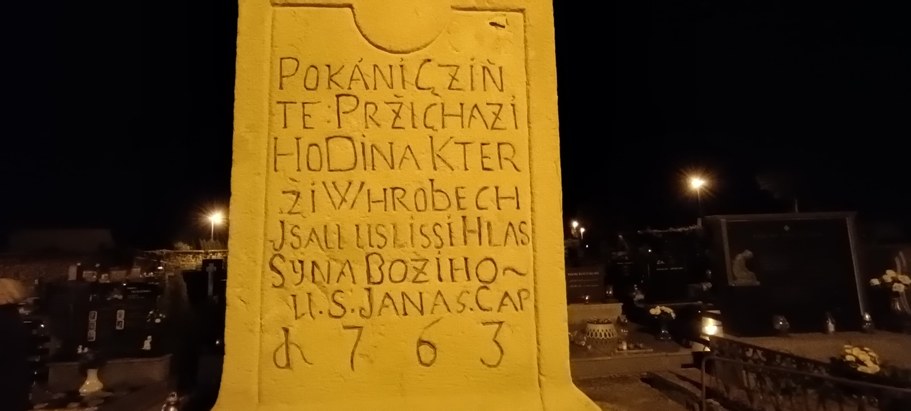 POKÁNI CZIŇ
TE PRŽICHAZI
HODINA KTER
ŽI W HROBECH
JSAU USLISSI HLAS
SYNA BOŽIHO~
U. S. JANA S. CAP
763